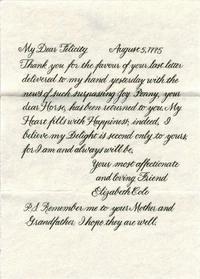 My Dear Felicity August 5, 1775
Thank you for the favour of your last letter
delivered to my hand yesterday with the
news of such surpassing Joy. Penny, your
dear Horse, has been returned to you. My
Heart fills with Happiness; indeed, I
believe my Delight is second only to yours,
for I am and always will be,
Your most affectionate
and loving Friend
Elizabeth Cole
P.S. Remember me to your Mother and
Grandfather. I hope they are well.